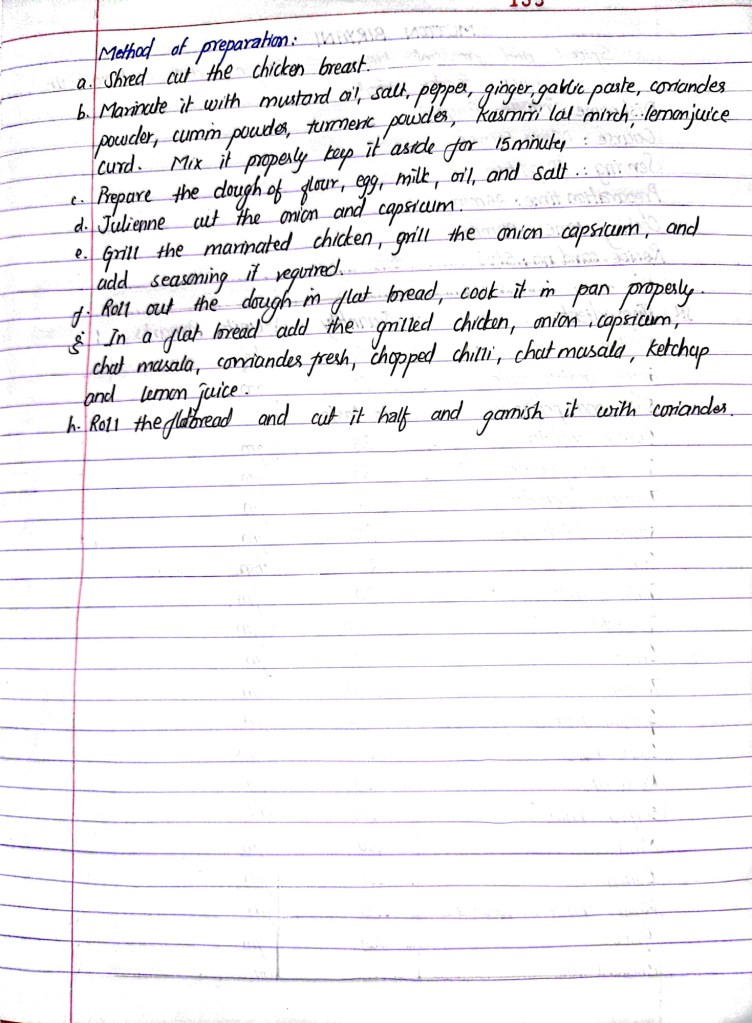 133
Method of preparation:
a. Shred cut the chicken breast.
b. Marinate it with mustard oil, salt, pepper, ginger, garlic paste, coriander
powder, cumin powder, turmeric powder, Kasmiri lal mirch, lemon juice
curd. Mix it properly keep it aside for 15 minutes
c. Prepare the dough of flour, egg, milk, oil, and salt.
d. Julienne cut the onion and capsicum.
e. Grill the marinated chicken, grill the onion capsicum, and
add seasoning if required.
f. Roll out the dough in flat bread, cook it in pan properly.
g. In a flat bread add the grilled chicken, onion, capsicum,
chat masala, corriander fresh, chopped chilli, chat masala, ketchup
and lemon juice.
h. Roll the flatbread and cut it half and garnish it with coriander.